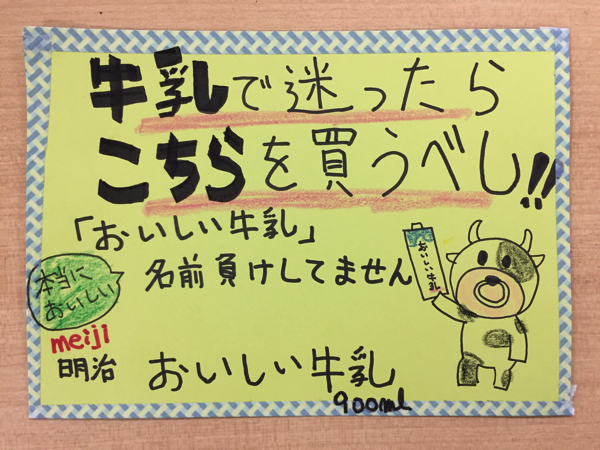 牛乳で迷ったら
こちらを買うべし!!
「おいしい牛乳」
名前負けしてません
おいしい牛乳
本当に
おいしい
meiji
明治
おいしい牛乳
900ml